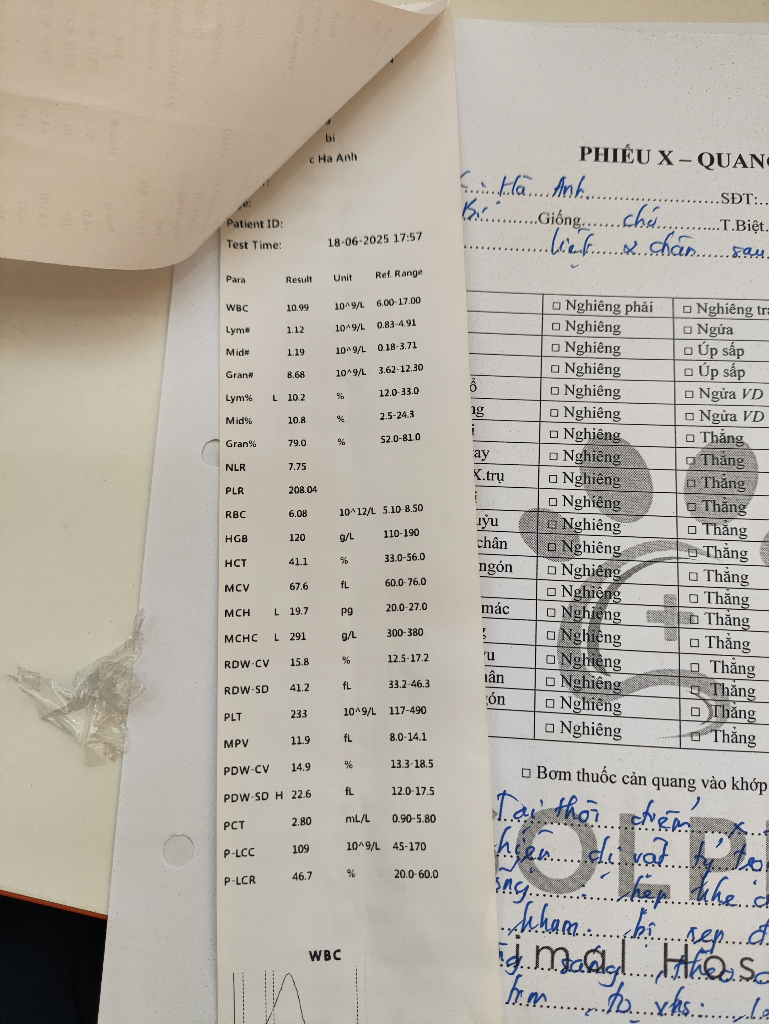 bi
c Ha Anh
Patient ID:
Test Time: 18-06-2025 17:57
Para Result Unit Ref. Range
WBC 10.99 10^9/L 6.00-17.00
Lym# 1.12 10^9/L 0.83-4.91
Mid# 1.19 10^9/L 0.18-3.71
Gran# 8.68 10^9/L 3.62-12.30
Lym% L 10.2 % 12.0-33.0
Mid% 10.8 % 2.5-24.3
Gran% 79.0 % 52.0-81.0
NLR 7.75
PLR 208.04
RBC 6.08 10^12/L 5.10-8.50
HGB 120 g/L 110-190
HCT 41.1 % 33.0-56.0
MCV 67.6 fL 60.0-76.0
MCH L 19.7 pg 20.0-27.0
MCHC L 291 g/L 300-380
RDW-CV 15.8 % 12.5-17.2
RDW-SD 41.2 fL 33.2-46.3
PLT 233 10^9/L 117-490
MPV 11.9 fL 8.0-14.1
PDW-CV 14.9 % 13.3-18.5
PDW-SD H 22.6 fL 12.0-17.5
PCT 2.80 mL/L 0.90-5.80
P-LCC 109 10^9/L 45-170
P-LCR 46.7 % 20.0-60.0
WBC
PHIẾU X – QUANG
Hà Anh SĐT:
Bi Giống chó T.Biệt
liệt 2 chân sau
□ Nghiêng phải □ Nghiêng trá
□ Nghiêng □ Ngửa
□ Nghiêng □ Úp sấp
□ Nghiêng □ Úp sấp
□ Nghiêng □ Ngửa VD
ng □ Nghiêng □ Ngửa VD
□ Nghiêng □ Thẳng
ay □ Nghiêng □ Thẳng
X.trụ □ Nghiêng □ Thẳng
□ Nghiêng □ Thẳng
uỷu □ Nghiêng □ Thẳng
chân □ Nghiêng □ Thẳng
ngón □ Nghiêng □ Thẳng
□ Nghiêng □ Thẳng
mác □ Nghiêng □ Thẳng
□ Nghiêng □ Thẳng
□ Nghiêng □ Thẳng
hân □ Nghiêng □ Thẳng
gón □ Nghiêng □ Thẳng
□ Nghiêng □ Thẳng
□ Bơm thuốc cản quang vào khớp
Tại thời điểm x
hiện dị vật tỷ trọ
OLP
hẹp khe
kham. bị xẹp đ
imal Hos
sáng theo
vhs: